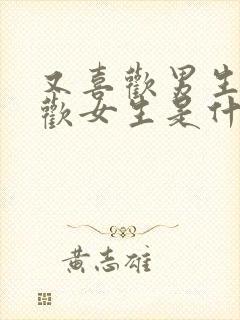 又喜歡男生
歡女生是什
黃志雄